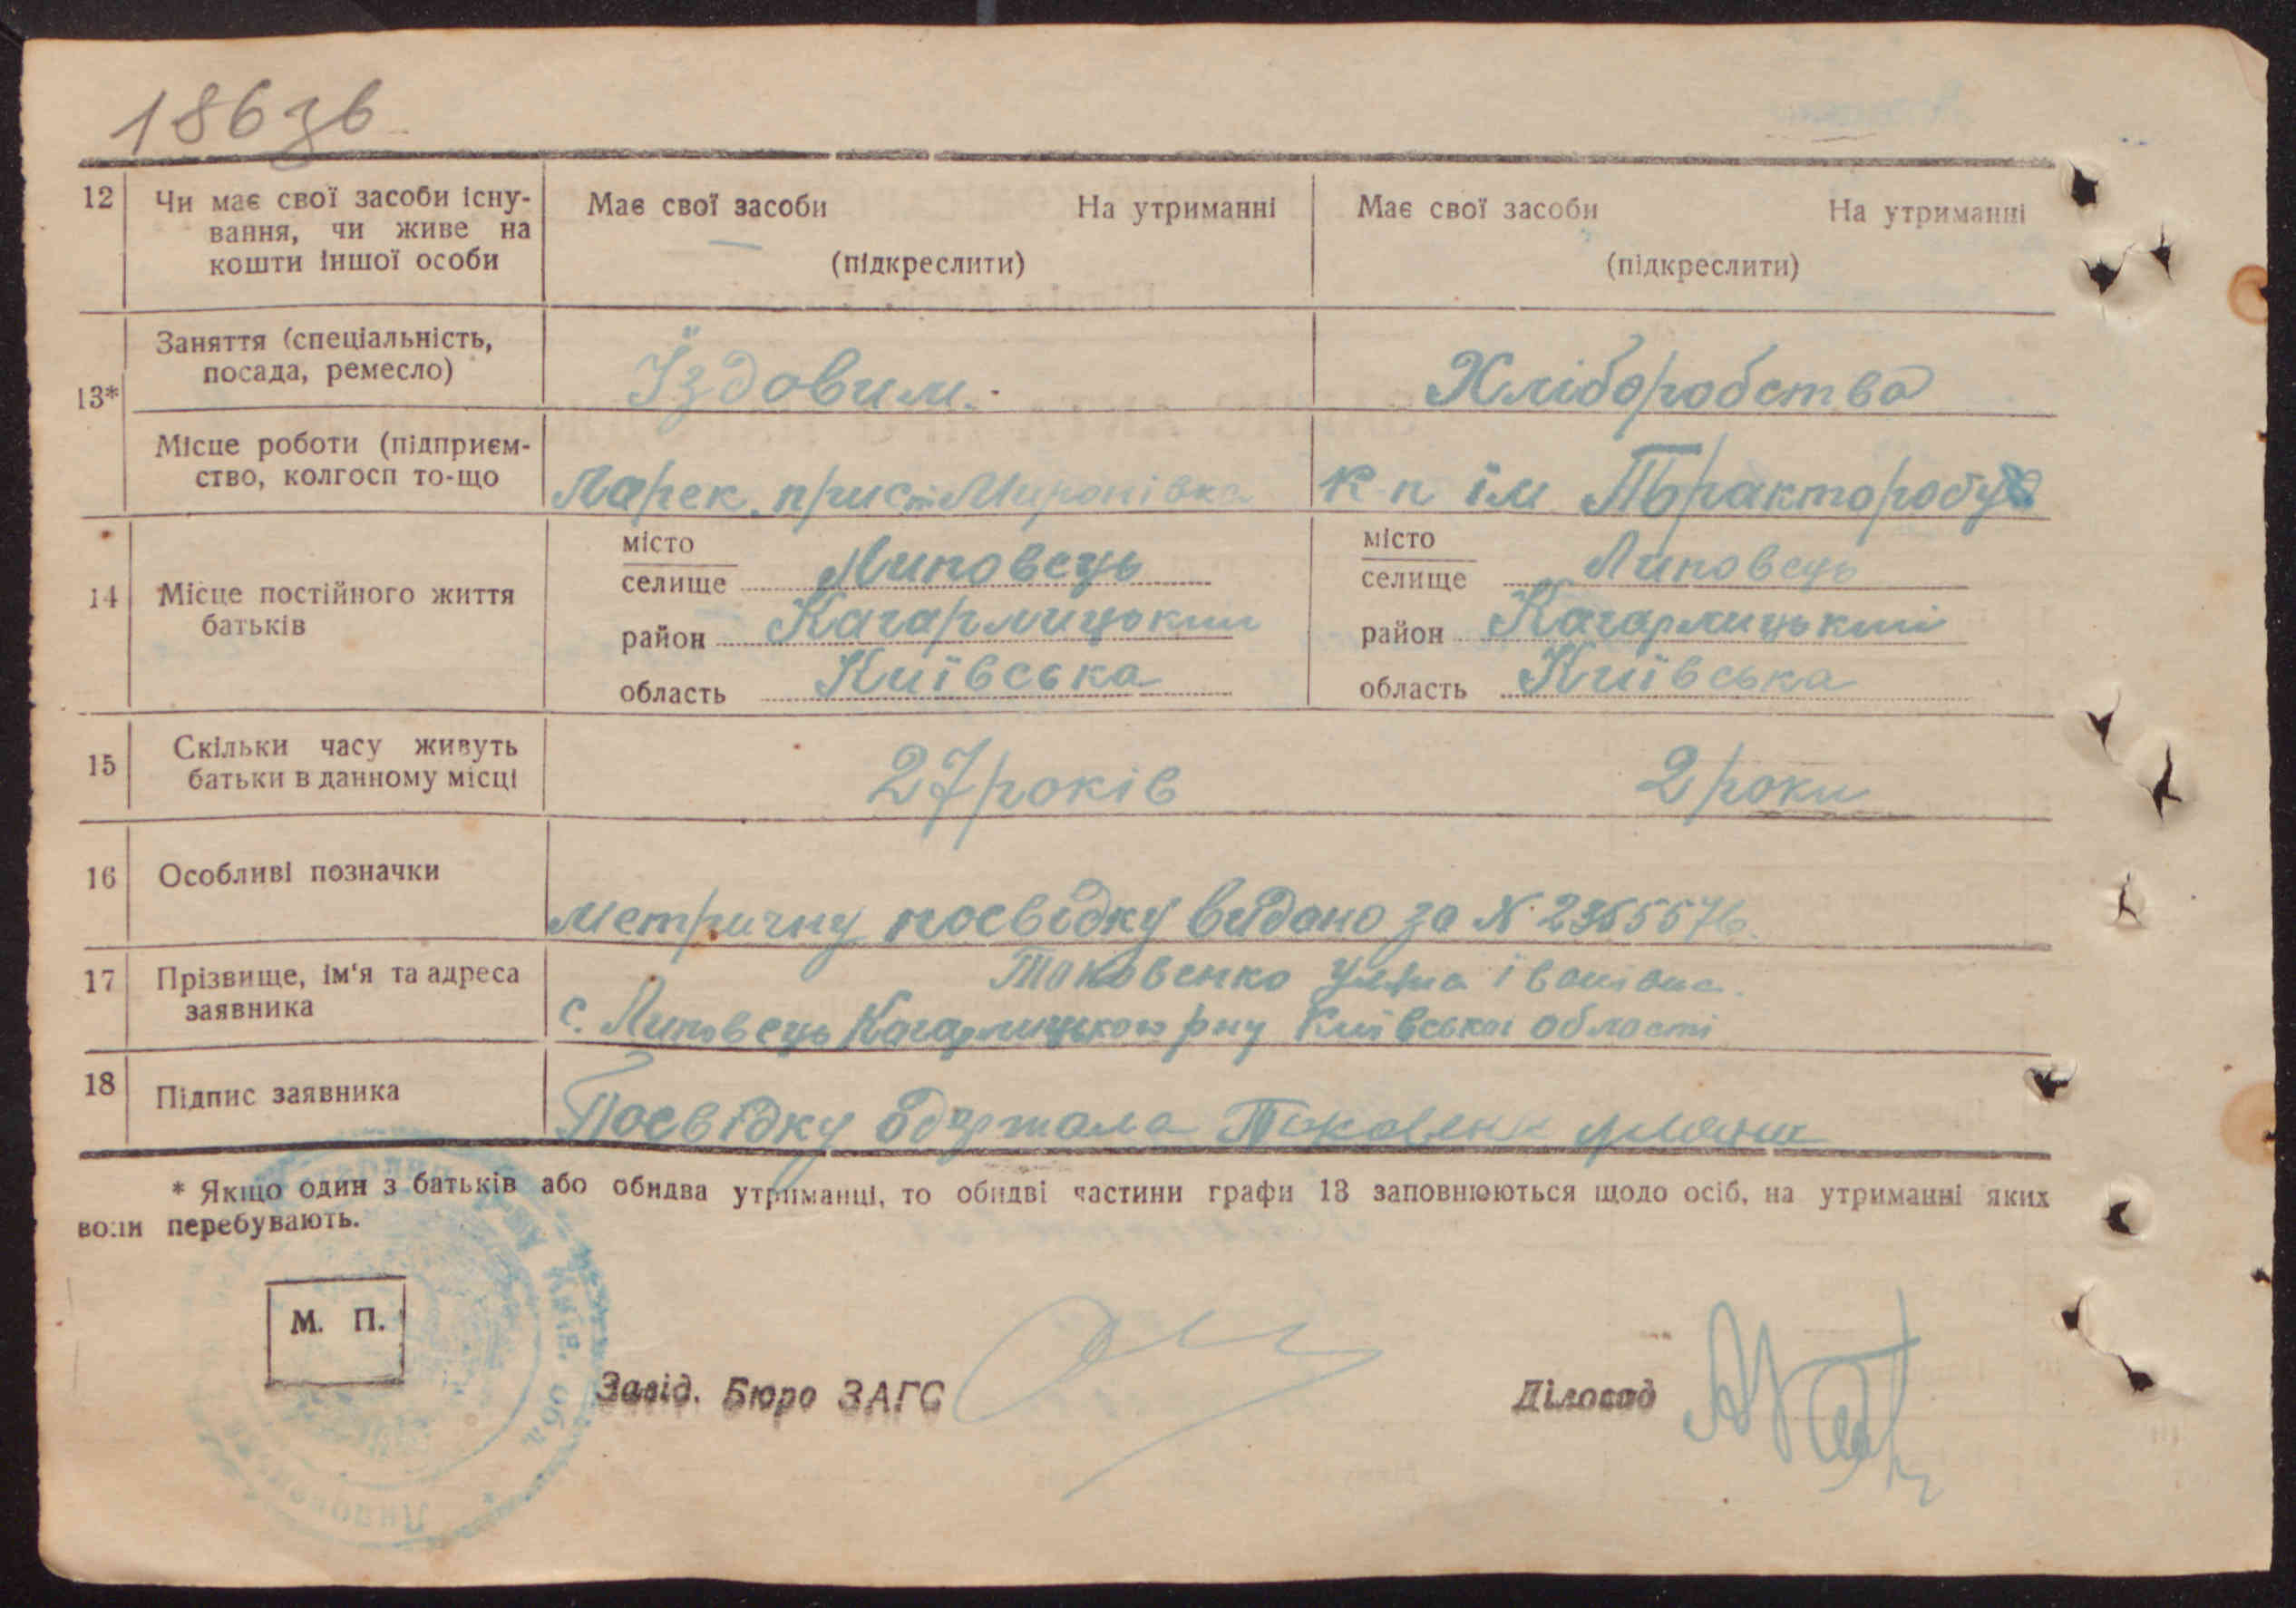 186 зв
12 Чи має свої засоби існу- Має свої засоби На утриманні Має свої засоби На утриманні
вання, чи живе на
кошти іншої особи (підкреслити) (підкреслити)
Заняття (спеціальність,
посада, ремесло) Їздовим. Хліборобства
13*
Місце роботи (підприєм-
ство, колгосп то-що Ларек при ст Миронівка к-п ім
місто місто
селище Липовець селище Липовець
14 Місце постійного життя
батьків район Кагарлицький район Кагарлицький
область Київська область Київська
15 Скільки часу живуть
батьки в данному місці 27 років 2 роки
16 Особливі позначки
метричну посвідку видано за №
17 Прізвище, ім'я та адреса Іванівна.
заявника с. Липовець Кагарлицького р-ну Київської області
18 Підпис заявника Посвідку одержала
* Якщо один з батьків або обидва утриманці, то обидві частини графи 13 заповнюються щодо осіб, на утриманні яких
вони перебувають.
М. П.
Завід. Бюро ЗАГС Діловод
Київ. обл.